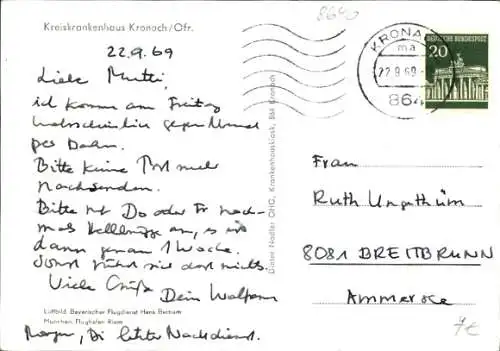 Kreiskrankenhaus Kronach/Ofr.
8640
22.9.69
Liebe Mutti,
ich komme am Freitag
wahrscheinlich gegen Abend
per Bahn.
Bitte keine Post mehr
nachsenden.
Bitte Do oder Fr noch-
mals an, es ist
dann genau 1 Woche.
Sonst rührt sie dort nichts.
Viele Grüße
Dein Wolfram
Morgen, Di letzter Nachdienst.
Luftbild: Bayerischer Flugdienst Hans Bertram
München, Flughafen Riem
Dieter Nadler OHG, Krankenhauskiosk, 864 Kronach
KRONA
ma
22.9.69
864
DEUTSCHE BUNDESPOST
20
Frau
Ruth Ungethüm
8081 BREITBRUNN
Ammersee
7€